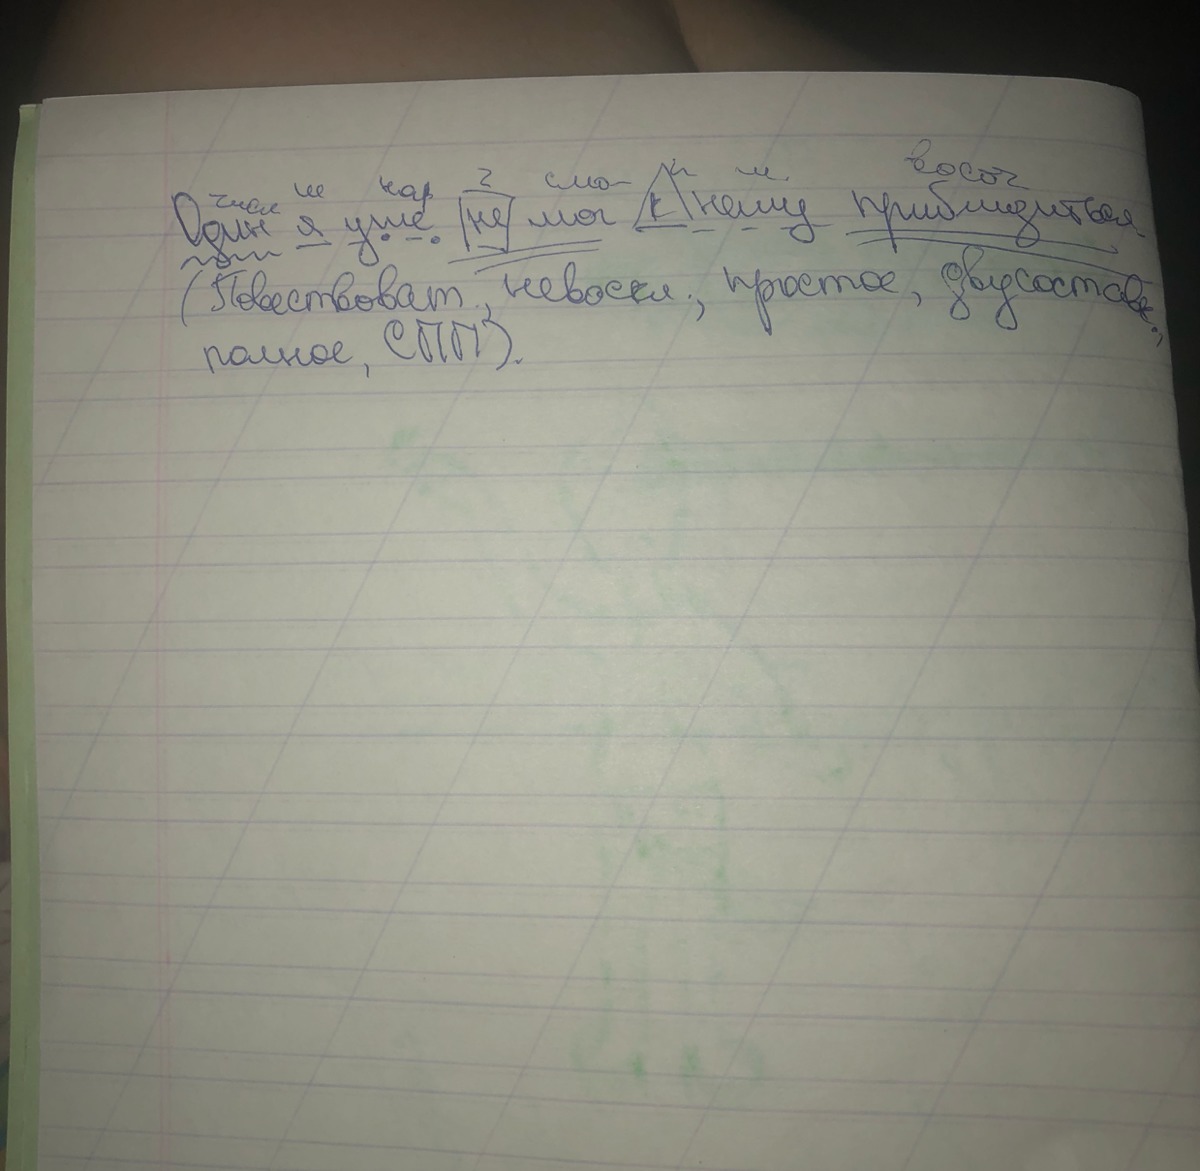 числ м нар г м.
Один я уже не мог к нему приблизиться
(Повествоват., невоскл., простое, двусостав.,
полное, СПП).